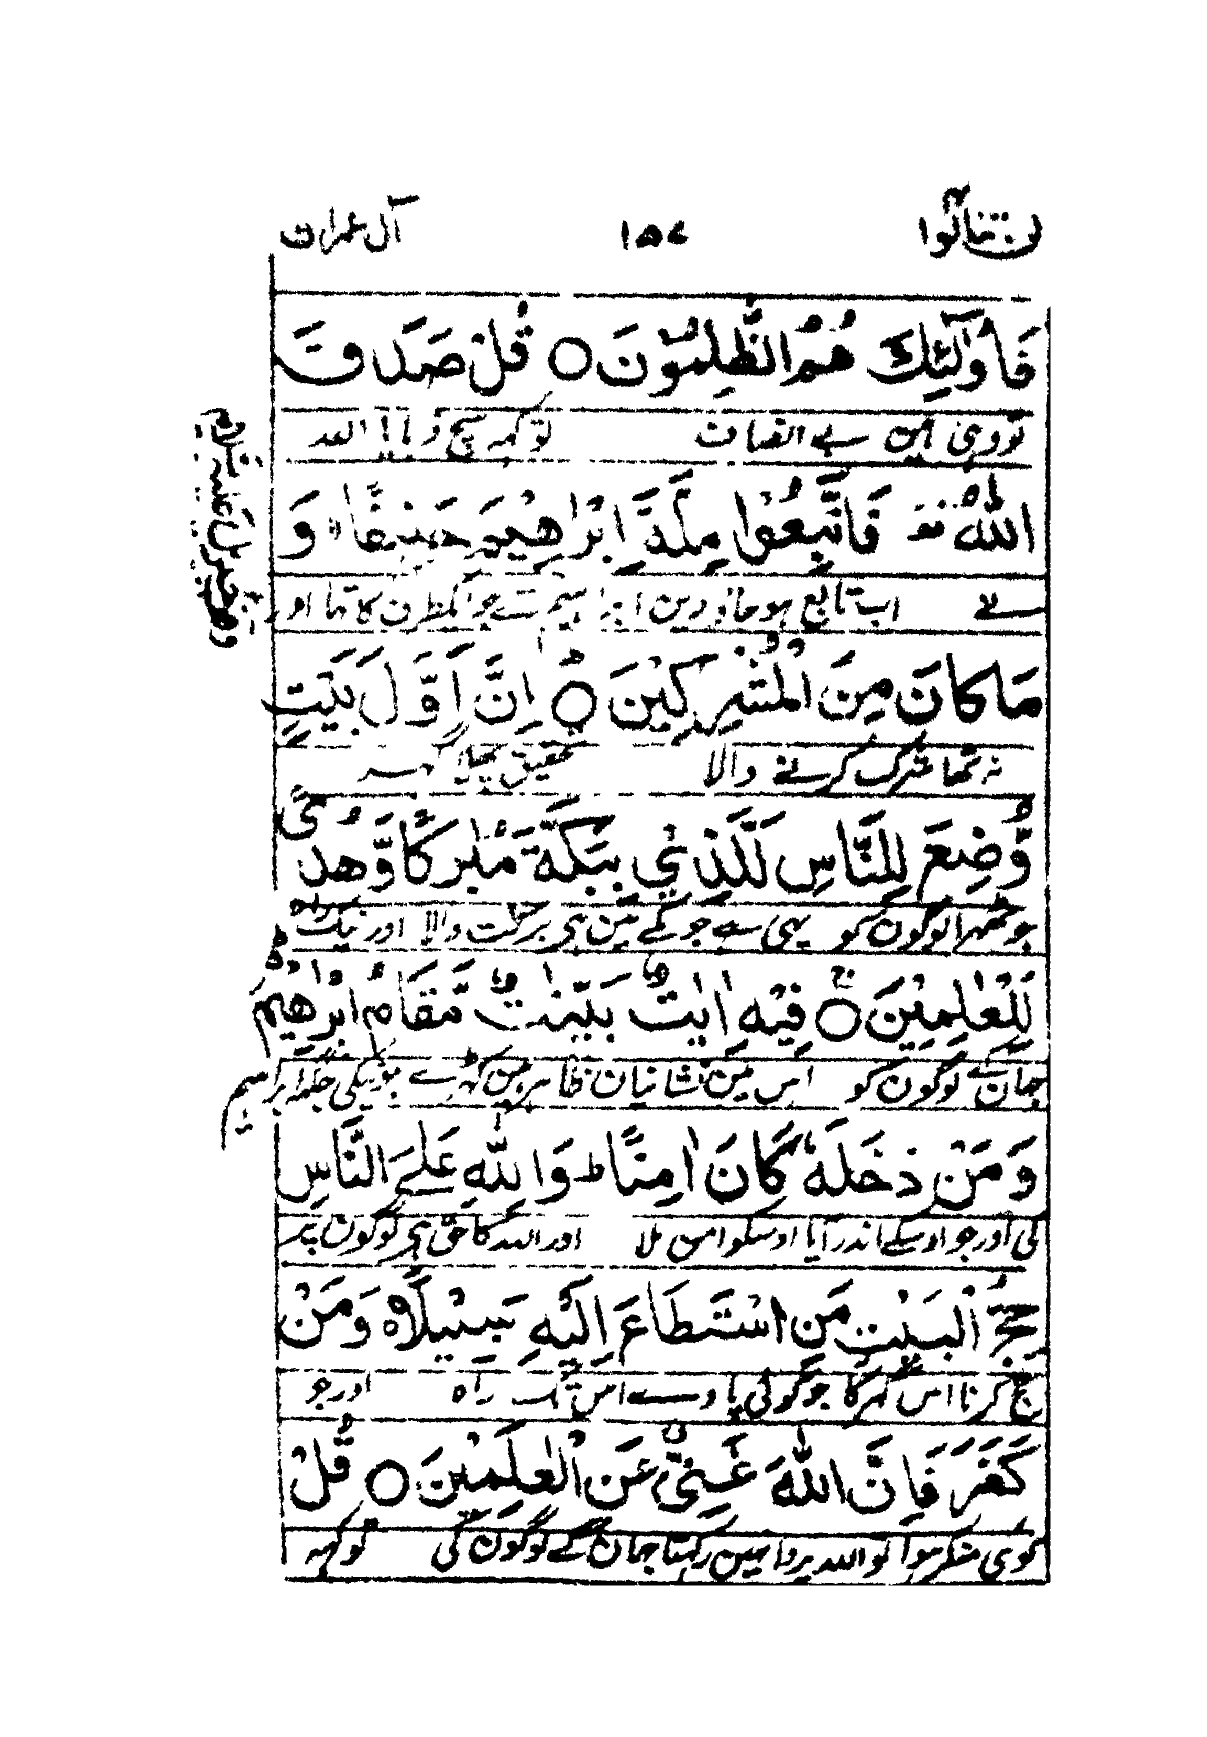 لن تنالوا ۴ ۱۵۷ آل عمران
فَاُولٰٓئِكَ هُمُ الظّٰلِمُوْنَ ○ قُلْ صَدَقَ
تو وہی ہیں بے انصاف تو کہہ سچ فرمایا اللہ
اللّٰهُ قف فَاتَّبِعُوْا مِلَّةَ اِبْرٰهِيْمَ حَنِيْفًا وَ
نے اب تابع ہو جاؤ دین ابراہیم کے جو ایکطرف کا تھا اور
مَا كَانَ مِنَ الْمُشْرِكِيْنَ ○ اِنَّ اَوَّلَ بَيْتٍ
نہ تھا شرک کرنے والا تحقیق پہلا گھر
وُّضِعَ لِلنَّاسِ لَلَّذِيْ بِبَكَّةَ مُبٰرَكًا وَّهُدًى
جو ٹھہرا لوگون کو یہی ہے جو مکے مین ہی برکت والا اور نیک راہ
لِّلْعٰلَمِيْنَ ○ فِيْهِ اٰيٰتٌ بَيِّنٰتٌ مَّقَامُ اِبْرٰهِيْمَ
جہان کے لوگون کو اس مین نشانیان ظاہر ہین کھڑے ہونیکی جگہ ابراہیم
وَ مَنْ دَخَلَهٗ كَانَ اٰمِنًا ط وَ لِلّٰهِ عَلَے النَّاسِ
کی اور جو اوسکے اندر آیا اوسکو امن ملا اور اللہ کا حق ہی لوگون پر
حِجُّ الْبَيْتِ مَنِ اسْتَطَاعَ اِلَيْهِ سَبِيْلًا ۵ وَ مَنْ
حج کرنا اس گھر کا جو کوئی پاوے اس تک راہ اور جو
كَفَرَ فَاِنَّ اللّٰهَ غَنِيٌّ عَنِ الْعٰلَمِيْنَ ○ قُلْ
کوئی منکر ہوا تو اللہ پروا نہین رکھتا جہان کے لوگون کی تو کہہ